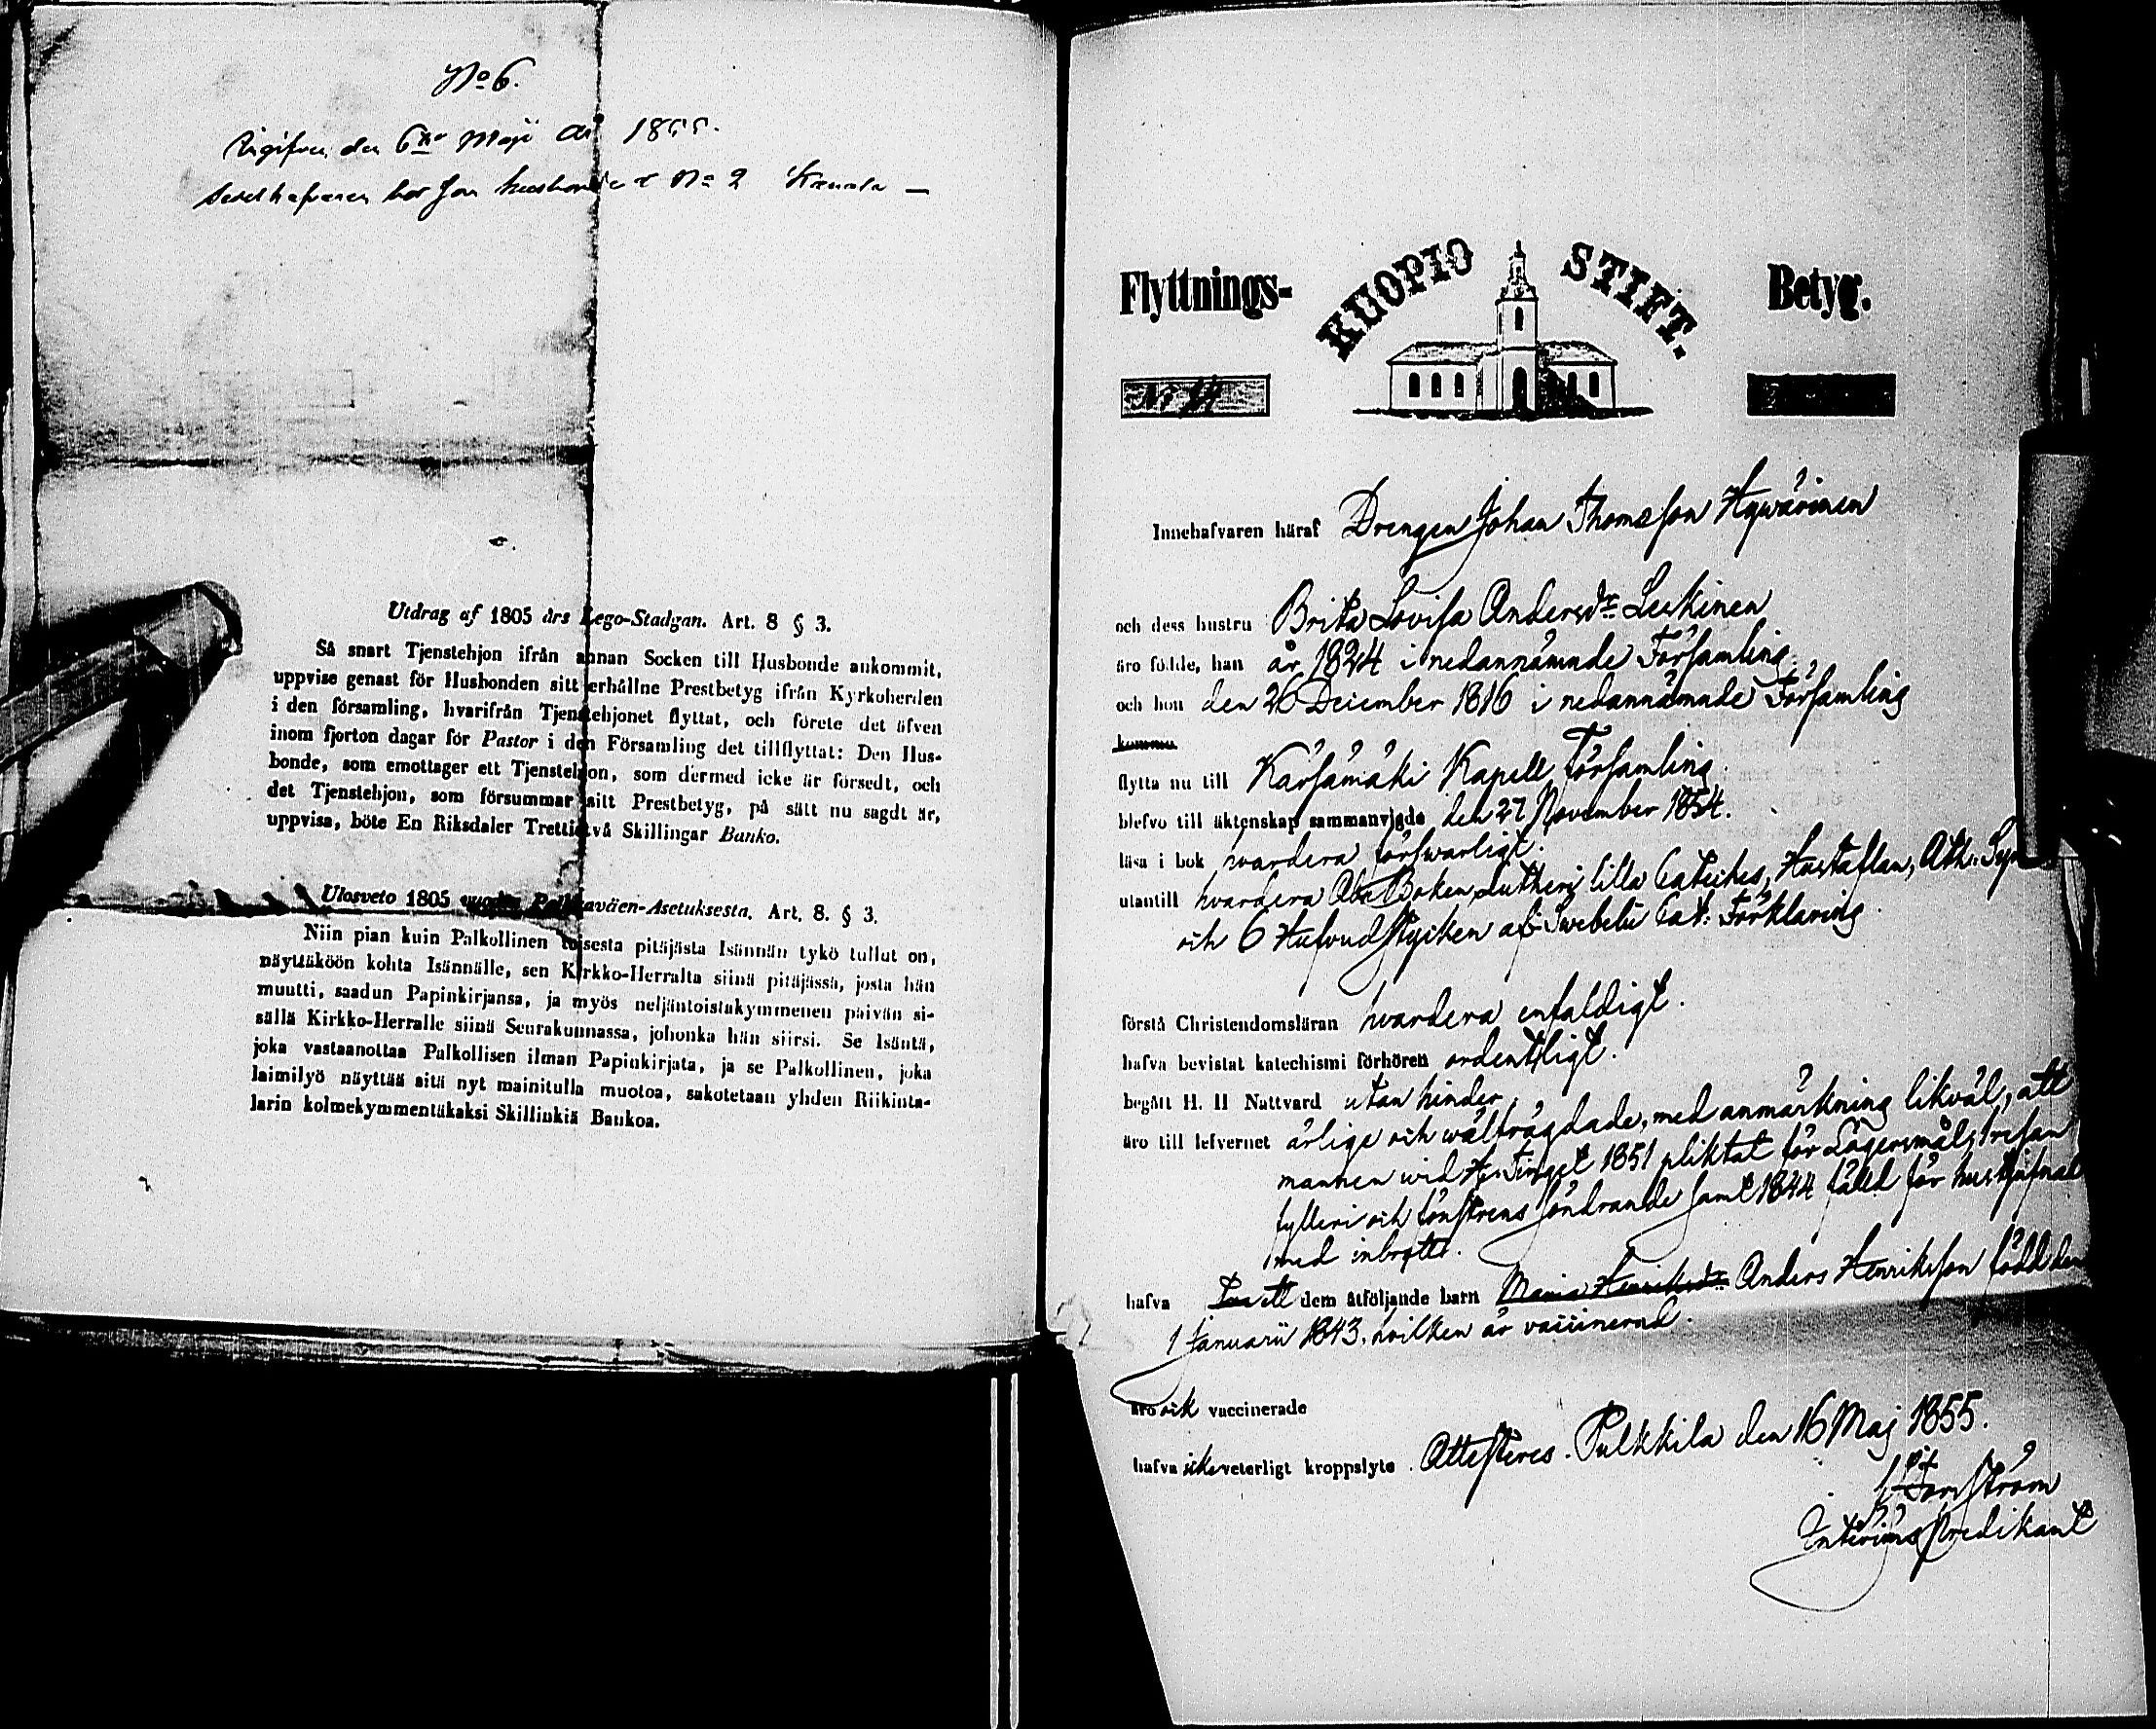 No 6.
den 6 Maji 1855.
No 2
Utdrag af 1805 års Lego-Stadgan. Art. 8 § 3.
Så snart Tjenstehjon ifrån annan Socken till Husbonde ankommit,
uppvise genast för Husbonden sitt erhållne Prestbetyg ifrån Kyrkoherden
i den församling, hvarifrån Tjenstehjonet flyttat, och förete det äfven
inom fjorton dagar för Pastor i den Församling det tillflyttat: Den Hus-
bonde, som emottager ett Tjenstehjon, som dermed icke är försedt, och
det Tjenstehjon, som försummar sitt Prestbetyg, på sätt nu sagdt är,
uppvisa, böte En Riksdaler Trettiotvå Skillingar Banko.
Ulosveto 1805 vuoden Palkkaväen-Asetuksesta. Art. 8. § 3.
Niin pian kuin Palkollinen toisesta pitäjästa Isännän tykö tullut on,
näyttäköön kohta Isännälle, sen Kirkko-Herralta siinä pitäjässä, josta hän
muutti, saadun Papinkirjansa, ja myös neljäntoistakymmenen päivän si-
sällä Kirkko-Herralle siinä Seurakunnassa, johonka hän siirsi. Se Isäntä,
joka vastaanottaa Palkollisen ilman Papinkirjata, ja se Palkollinen, joka
laimilyö näyttää sitä nyt mainitulla muotoa, sakotetaan yhden Riikinta-
larin kolmekymmentäkaksi Skillinkiä Bankoa.
Flyttnings- KUOPIO STIFT. Betyg.
No 14
Innehafvaren häraf Drengen Johan Thomasson Hywärinen
och dess hustru Brita Lovisa Andersdr Leskinen
äro födde, han år 1824 i nedannämnde Församling
och hon den 26 December 1816 i nedannämnde Församling
komma
flytta nu till Kärsämäki Kapell Församling.
blefvo till äktenskap sammanvigde den 27 November 1854.
läsa i bok hvardera försvarligt.
utantill hvardera Abc Boken Lutheri lilla Cateches, Hustaflan, Ath. Sym
och 6 Hufvudstycken af Swebelii Cat: Förklaring
förstå Christendomsläran hvardera enfaldigt.
hafva bevistat katechismi förhören ordentligt.
begått H. H Nattvard utan hinder.
äro till lefvernet ärlige och wälfrägdade, med anmärkning likväl, att
mannen wid Tinget 1851 pliktat för Lägersmål,
fylleri och fönstrens söndrande samt 1844 fälld för
med inbrott.
hafva ett dem åtföljande barn Maria Henriksdr Anders Henriksson född den
1 Januarii 1843, hvilken är vaccinerad.
äro ock vaccinerade
hafva icke veterligt kroppslyte. Attesteres. Pulkkila den 16 Maj 1855.
Forsström
Interims Predikant